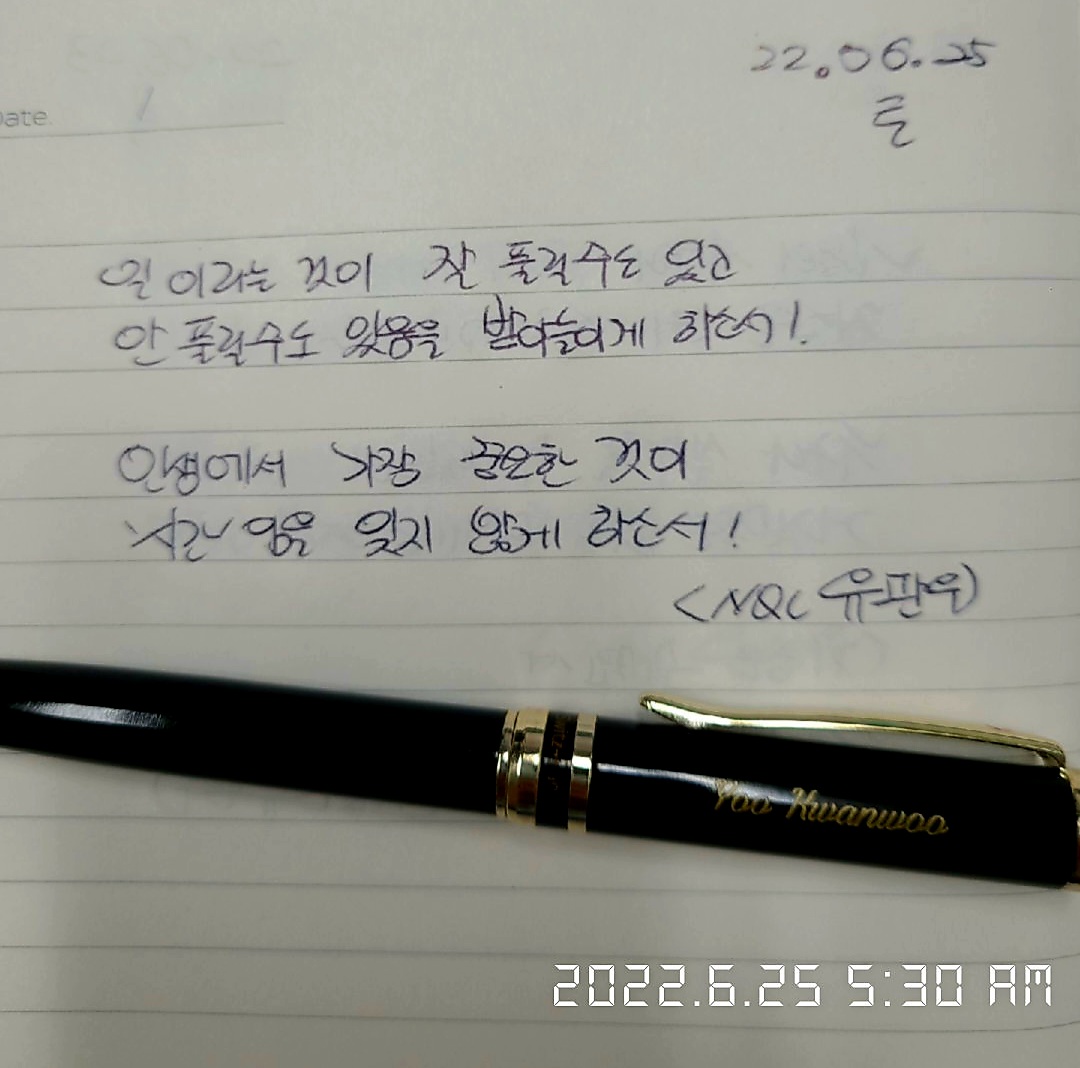 22.06.25
Date.
토
일이라는 것이 잘 풀릴수도 있고
안 풀릴수도 있음을 받아들이게 하소서!
인생에서 가장 중요한 것이
시간 임을 잊지 않게 하소서!
<NQC 유관우>
Yoo Kwanwoo
2022.6.25 5:30 AM